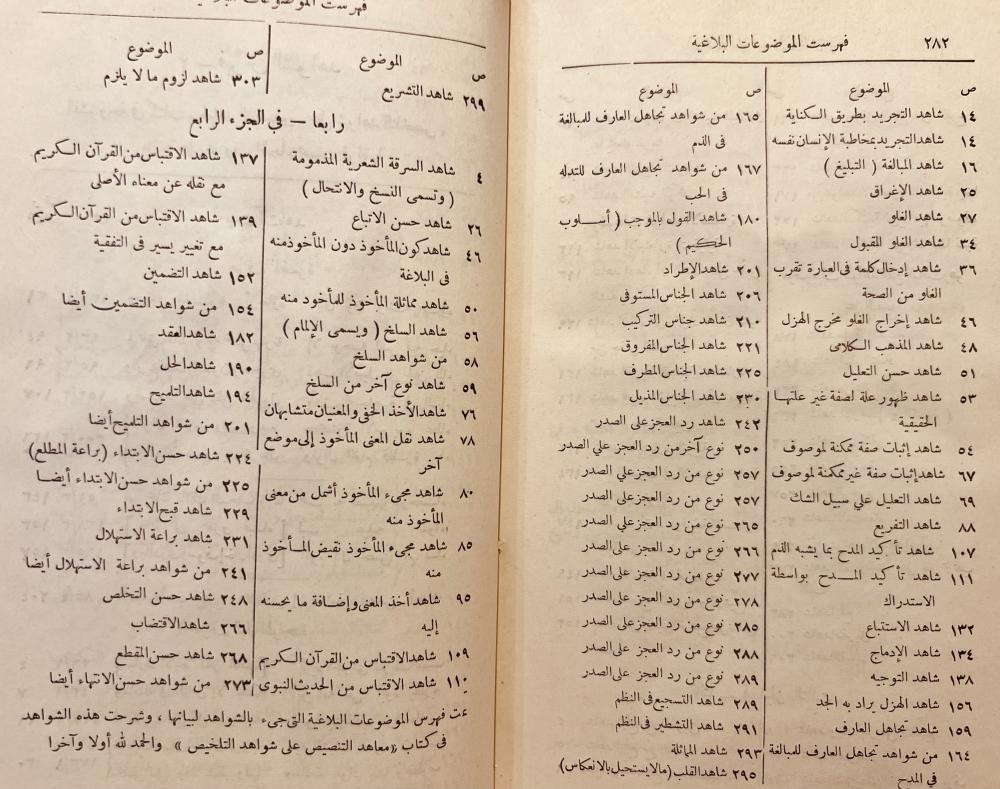 ٢٨٢ فهرست الموضوعات البلاغية
ص الموضوع
١٤ شاهد التجريد بطريق الكناية
١٤ شاهد التجريد بمخاطبة الإنسان نفسه
١٦ شاهد المبالغة ( التبليغ )
٢٥ شاهد الإغراق
٢٧ شاهد الغلو
٣٤ شاهد الغلو المقبول
٣٦ شاهد إدخال كلمة فى العبارة تقرب
الغلو من الصحة
٤٦ شاهد إخراج الغلو مخرج الهزل
٤٨ شاهد المذهب الكلامى
٥١ شاهد حسن التعليل
٥٣ شاهد ظهور علة لصفة غير علتها
الحقيقية
٥٤ شاهد إثبات صفة ممكنة لموصوف
٦٧ شاهد إثبات صفة غير ممكنة لموصوف
٦٩ شاهد التعليل علي سبيل الشك
٨٨ شاهد التفريع
١٠٧ شاهد تأكيد المدح بما يشبه الذم
١١١ شاهد تأكيد المدح بواسطة
الاستدراك
١٣٢ شاهد الاستتباع
١٣٤ شاهد الإدماج
١٣٨ شاهد التوجيه
١٥٦ شاهد الهزل يراد به الجد
١٥٩ شاهد تجاهل العارف
١٦٤ من شواهد تجاهل العارف للمبالغة
فى المدح
ص الموضوع
١٦٥ من شواهد تجاهل العارف للمبالغة
فى الذم
١٦٧ من شواهد تجاهل العارف للتدله
فى الحب
١٨٠ شاهد القول بالموجب ( أسلوب
الحكيم )
٢٠١ شاهد الإطراد
٢٠٦ شاهد الجناس المستوفى
٢١٠ شاهد جناس التركيب
٢٢١ شاهد الجناس المفروق
٢٢٥ شاهد الجناس المطرف
٢٣٠ شاهد الجناس المذيل
٢٤٢ شاهد رد العجز على الصدر
٢٥٠ نوع آخر من رد العجز على الصدر
٢٥٧ نوع من رد العجز علي الصدر
٢٥٧ نوع من رد العجز على الصدر
٢٦٥ نوع من رد العجز على الصدر
٢٦٦ نوع من رد العجز على الصدر
٢٧٧ نوع من رد العجز على الصدر
٢٧٨ نوع من رد العجز على الصدر
٢٨٥ نوع من رد العجز على الصدر
٢٨٨ نوع من رد العجز على الصدر
٢٨٩ نوع من رد العجز على الصدر
٢٨٩ شاهد التسجيع فى النظم
٢٩١ شاهد التشطير فى النظم
٢٩٣ شاهد المماثلة
٢٩٥ شاهد القلب (مالا يستحيل بالانعكاس)
فهرست الموضوعات البلاغية
ص الموضوع
٢٩٩ شاهد التشريع
ص الموضوع
٣٠٣ شاهد لزوم ما لا يلزم
رابعا — في الجزء الرابع
٤ شاهد السرقة الشعرية المذمومة
( وتسمى النسخ والانتحال )
٢٦ شاهد حسن الاتباع
٤٦ شاهد كون المأخوذ دون المأخوذ منه
فى البلاغة
٥٠ شاهد مماثلة المأخوذ للمأخود منه
٥٦ شاهد السلخ ( ويسمى الإلمام )
٥٨ من شواهد السلخ
٥٩ شاهد نوع آخر من السلخ
٧٦ شاهد الأخذ الخفى والمعنيان متشابهان
٧٨ شاهد نقل المعنى المأخوذ إلى موضع
آخر
٨٠ شاهد مجىء المأخوذ أشمل من معنى
المأخوذ منه
٨٥ شاهد مجىء المأخوذ نقيض المأخوذ
منه
٩٥ شاهد أخذ المعنى وإضافة ما يحسنه
إليه
١٠٩ شاهد الاقتباس من القرآن الكريم
١١٠ شاهد الاقتباس من الحديث النبوى
١٣٧ شاهد الاقتباس من القرآن الكريم
مع نقله عن معناه الأصلى
١٣٩ شاهد الاقتباس من القرآن الكريم
مع تغيير يسير فى التقفية
١٥٢ شاهد التضمين
١٥٤ من شواهد التضمين أيضا
١٨٢ شاهد العقد
١٩٠ شاهد الحل
١٩٤ شاهد التلميح
٢٠١ من شواهد التلميح أيضا
٢٢٤ شاهد حسن الابتداء (براعة المطلع)
٢٢٥ من شواهد حسن الابتداء أيضا
٢٢٩ شاهد قبح الابتداء
٢٣١ شاهد براعة الاستهلال
٢٤١ من شواهد براعة الاستهلال أيضا
٢٤٨ شاهد حسن التخلص
٢٦٦ شاهد الاقتضاب
٢٦٨ شاهد حسن المقطع
٢٧٣ من شواهد حسن الانتهاء أيضا
ـت فهرس الموضوعات البلاغية التى جىء بالشواهد لبيانها ، وشرحت هذه الشواهد
فى كتاب «معاهد التنصيص على شواهد التلخيص» والحمد لله أولا وآخرا